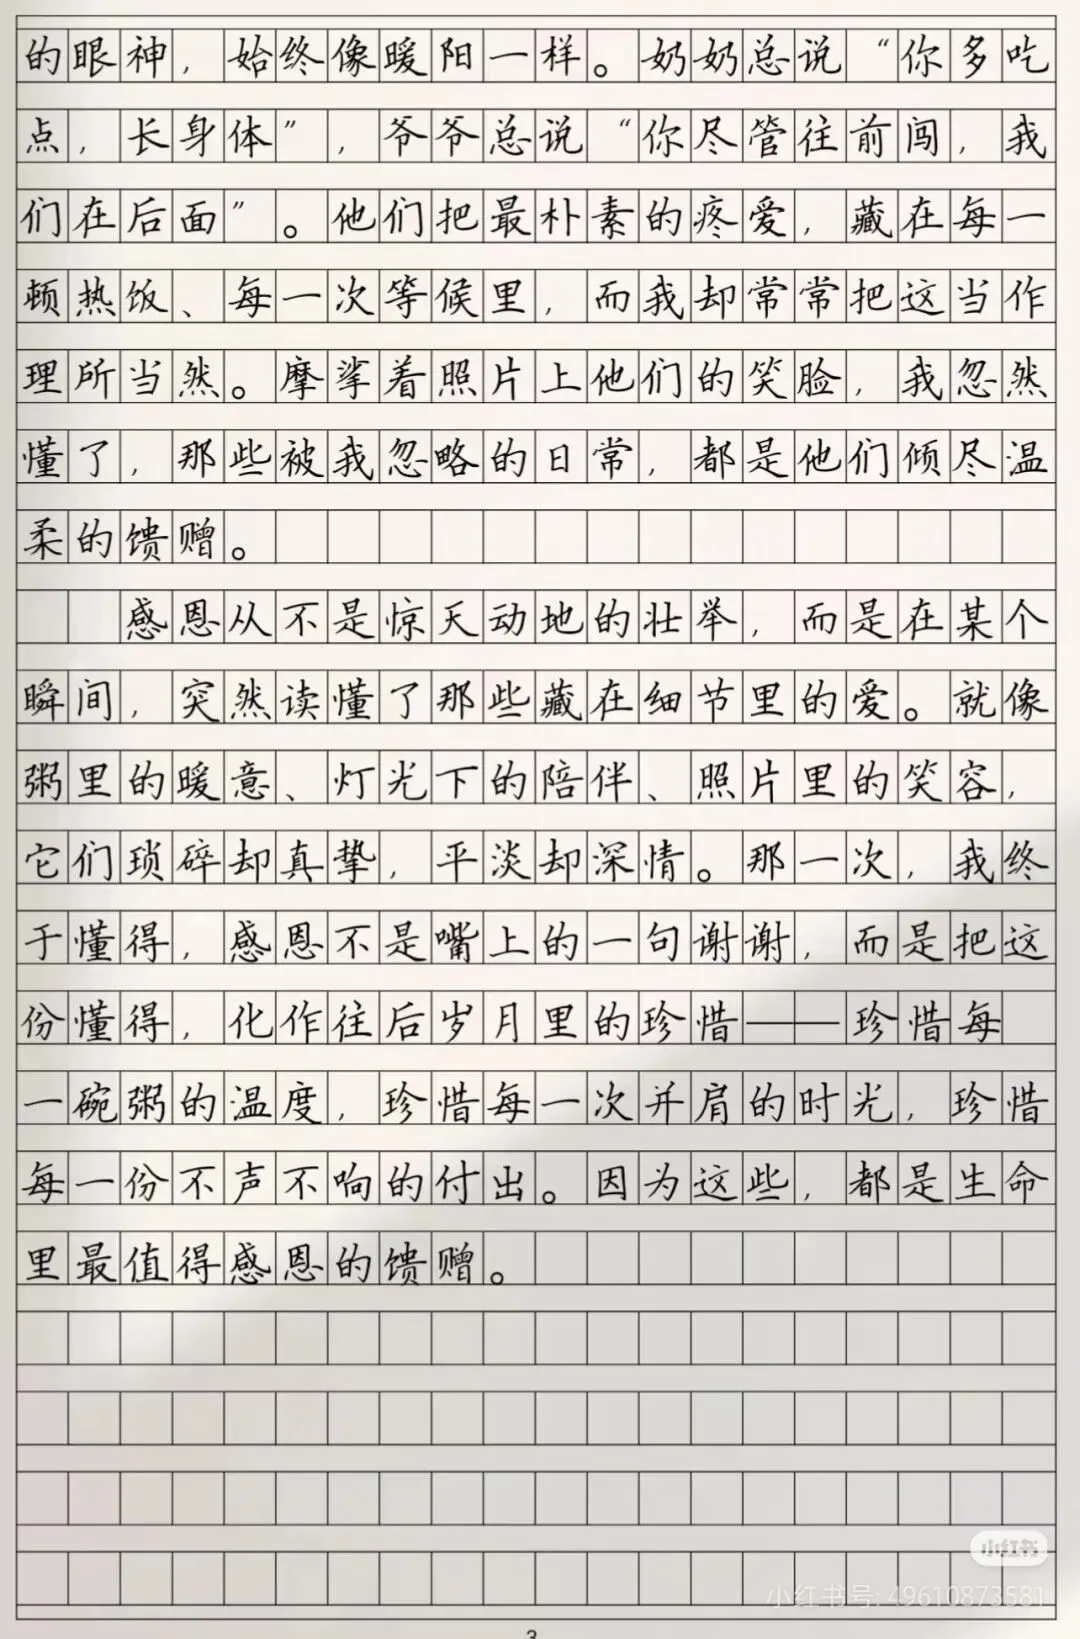 的眼神，始终像暖阳一样。奶奶总说“你多吃
点，长身体”，爷爷总说“你尽管往前闯，我
们在后面”。他们把最朴素的疼爱，藏在每一
顿热饭、每一次等候里，而我却常常把这当作
理所当然。摩挲着照片上他们的笑脸，我忽然
懂了，那些被我忽略的日常，都是他们倾尽温
柔的馈赠。
感恩从不是惊天动地的壮举，而是在某个
瞬间，突然读懂了那些藏在细节里的爱。就像
粥里的暖意、灯光下的陪伴、照片里的笑容，
它们琐碎却真挚，平淡却深情。那一次，我终
于懂得，感恩不是嘴上的一句谢谢，而是把这
份懂得，化作往后岁月里的珍惜——珍惜每
一碗粥的温度，珍惜每一次并肩的时光，珍惜
每一份不声不响的付出。因为这些，都是生命
里最值得感恩的馈赠。
小红书
小红书号: 49610873581
3